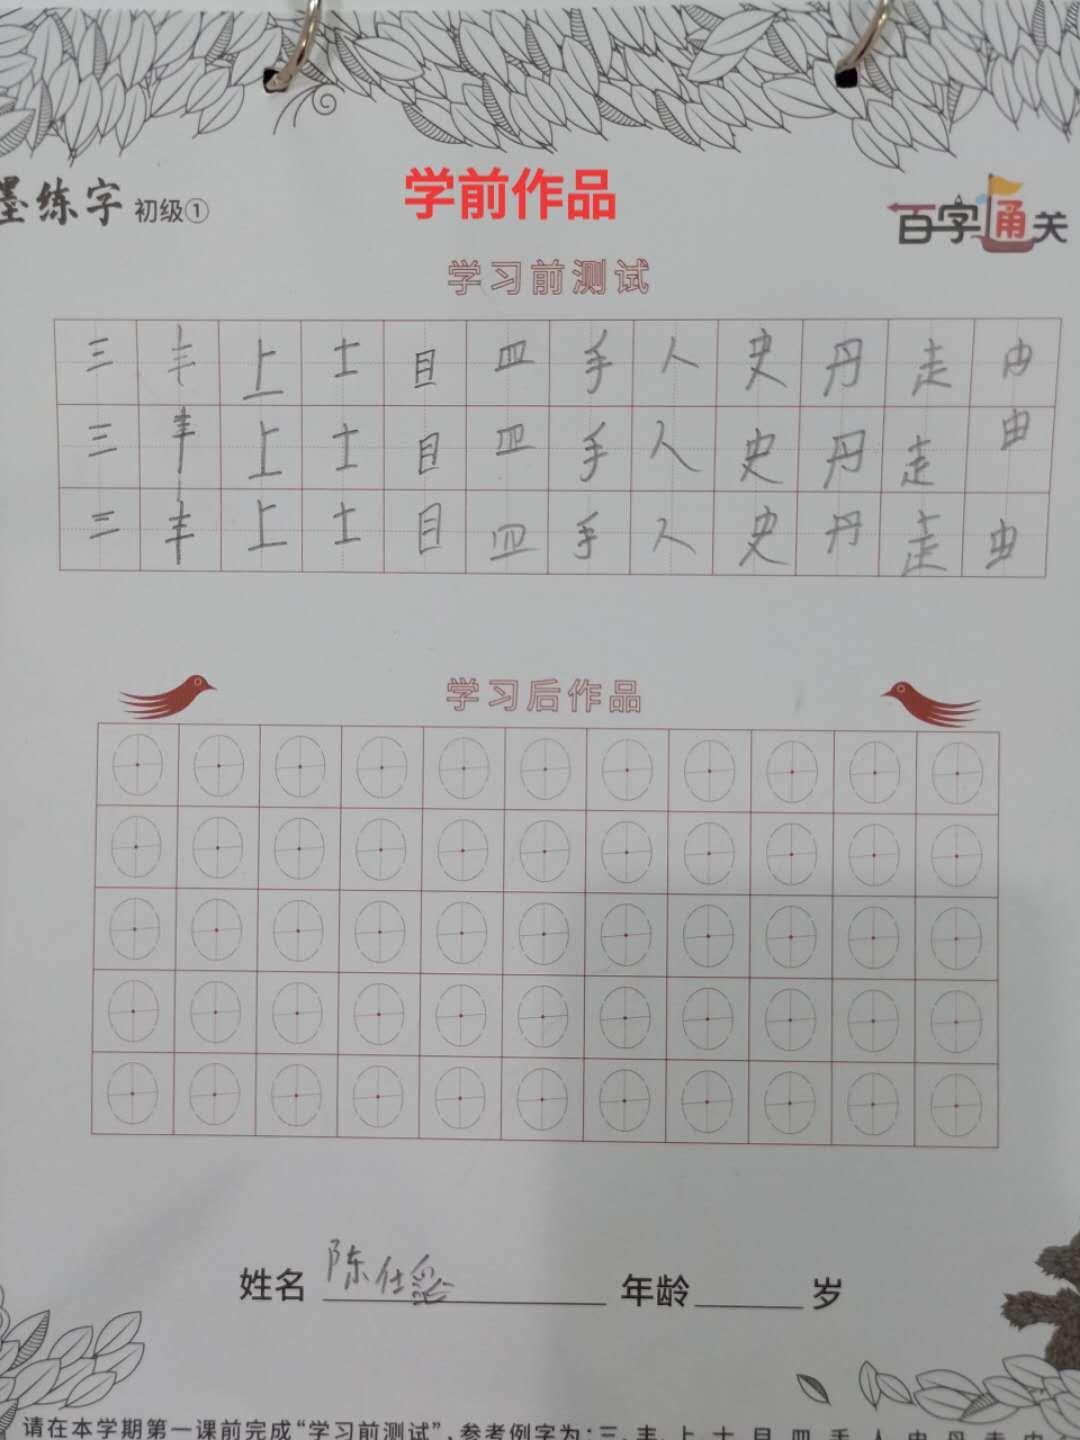 墨练字 初级① 学前作品 百字通关
学习前测试
三 丰 上 士 目 四 手 人 史 丹 走 由
三 丰 上 士 目 四 手 人 史 丹 走 由
三 丰 上 士 目 四 手 人 史 丹 走 虫
学习后作品
姓名 陈仕 年龄 岁
请在本学期第一课前完成“学习前测试”,参考例字为:三、丰、上、士、目、四、手、人、史、丹、走、由